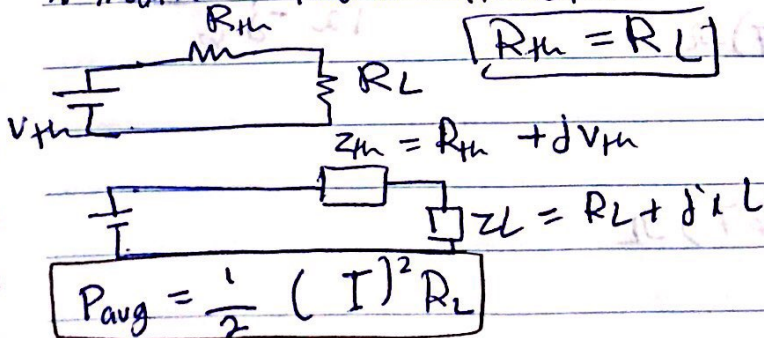 Rth
Rth = RL
RL
Vth
Zth = Rth + jVth
ZL = RL + jxL
Pavg = 1/2 (I)² RL